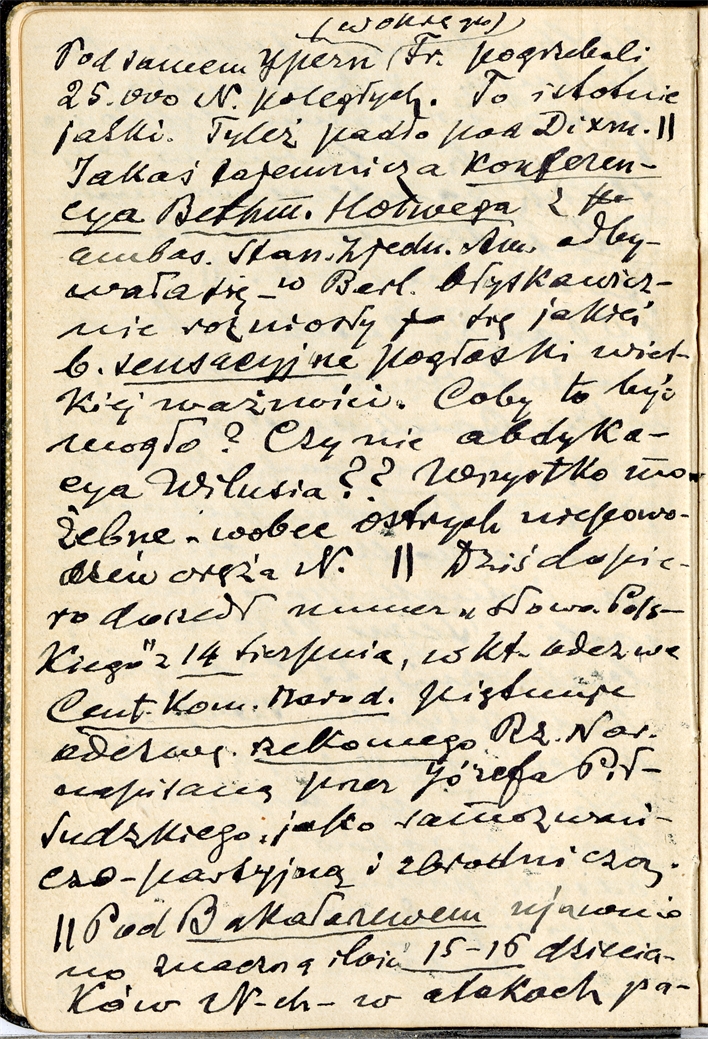 (w okręgu)
Pod samem Ypern Fr. pogrzebali
25.000 N. poległych. To istotnie
jatki. Tyleż padło pod Dixm. ||
Jakaś tajemnicza konferen-
cya Bethm. Holwega z
ambas. Stan. Zjedn. Am. odby-
wała się w Berl. Błyskawicz-
nie rozniosły się jakieś
b. sensacyjne pogłoski wiel-
kiej ważności. Coby to być
mogło? Czy nie abdyka-
cya Wilusia?? Wszystko mo-
żebne wobec ostrych niepowo-
dzeń oręża N. || Dziś dopie-
ro doszedł numer „Słowa Pols-
kiego" z 14 sierpnia, w kt. odezwa
Cent. Kom. Narod. piętnuje
odezwę rzekomego Rz. Nar.
napisaną przez Józefa Pił-
sudzkiego, jako samozwań-
czo-partyjną i zbrodniczą.
|| Pod Bakałarzewem ujawnio
no znaczną ilość 15-16 dziecia-
ków N-ch - w atakach pa-